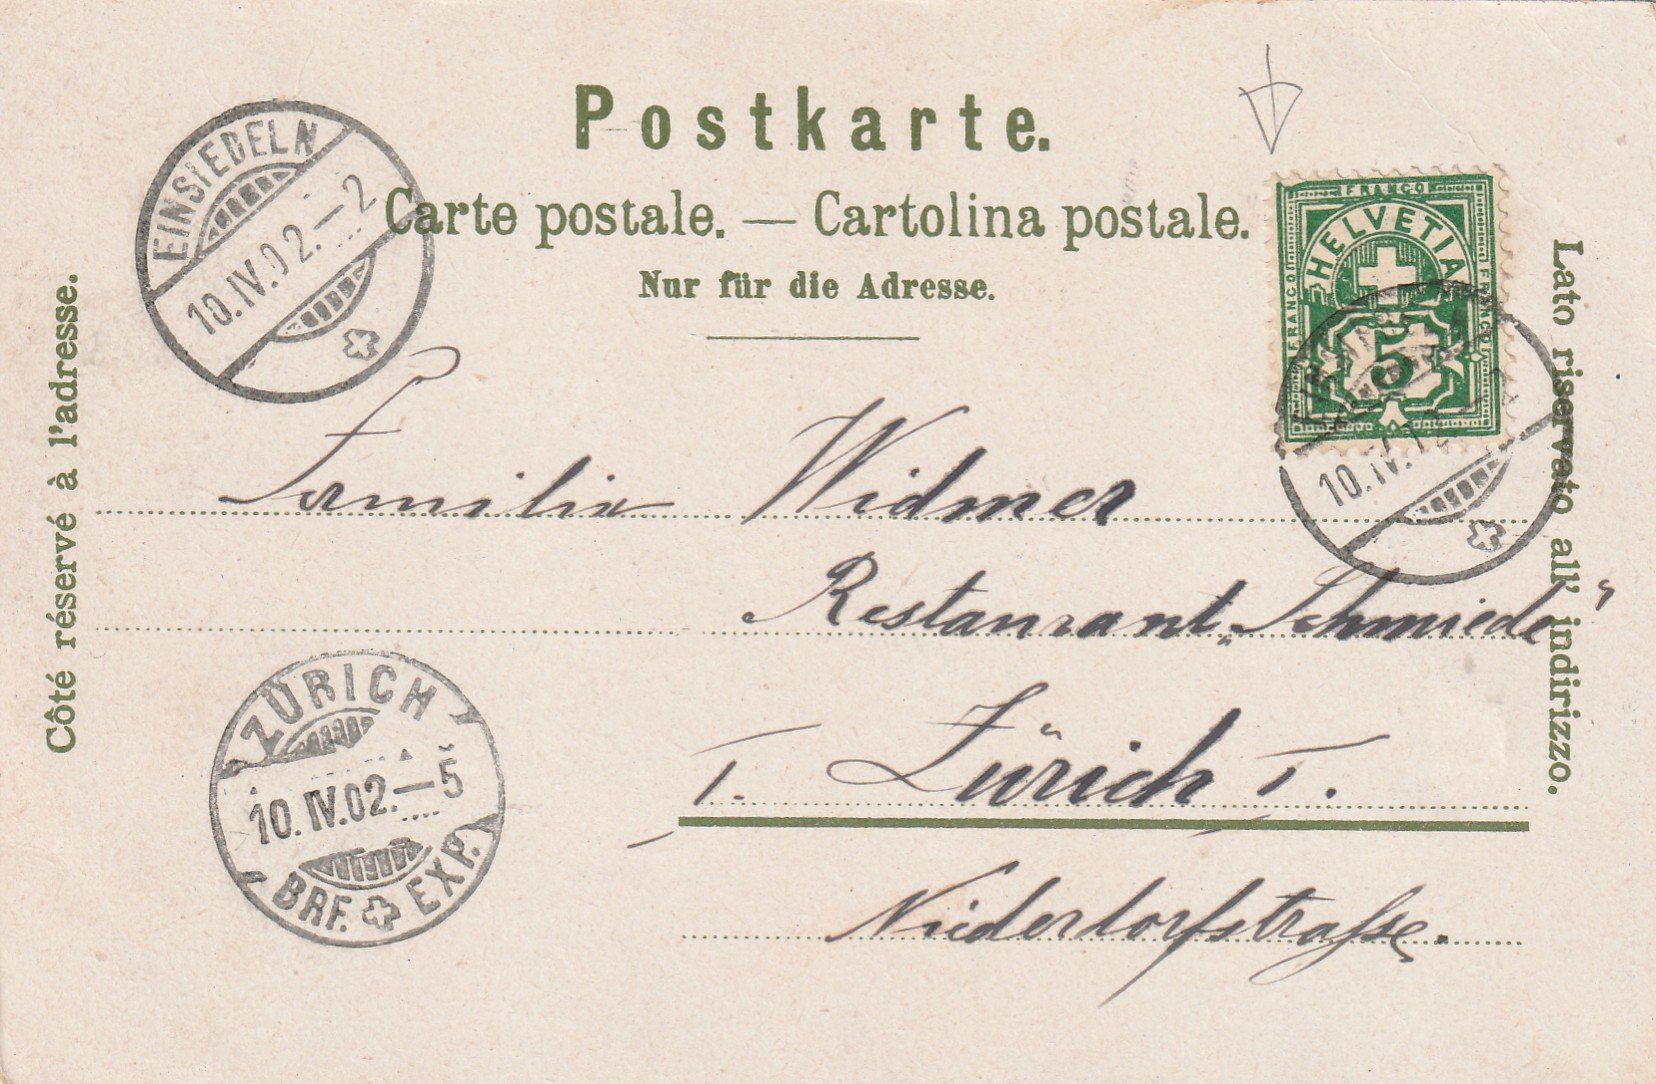 Postkarte.
Carte postale. — Cartolina postale.
Nur für die Adresse.
Côté réservé à l'adresse.
Lato riservato all' indirizzo.
EINSIEDELN
10.IV.02.–2
FRANCO
FRANCO
FRANCO
HELVETIA
5
10.IV.02
Familie Widmer
Restaurant „Schmiede"
I. Zürich I.
Niederdorfstraſse.
ZÜRICH
10.IV.02.–5
BRF. EXP.